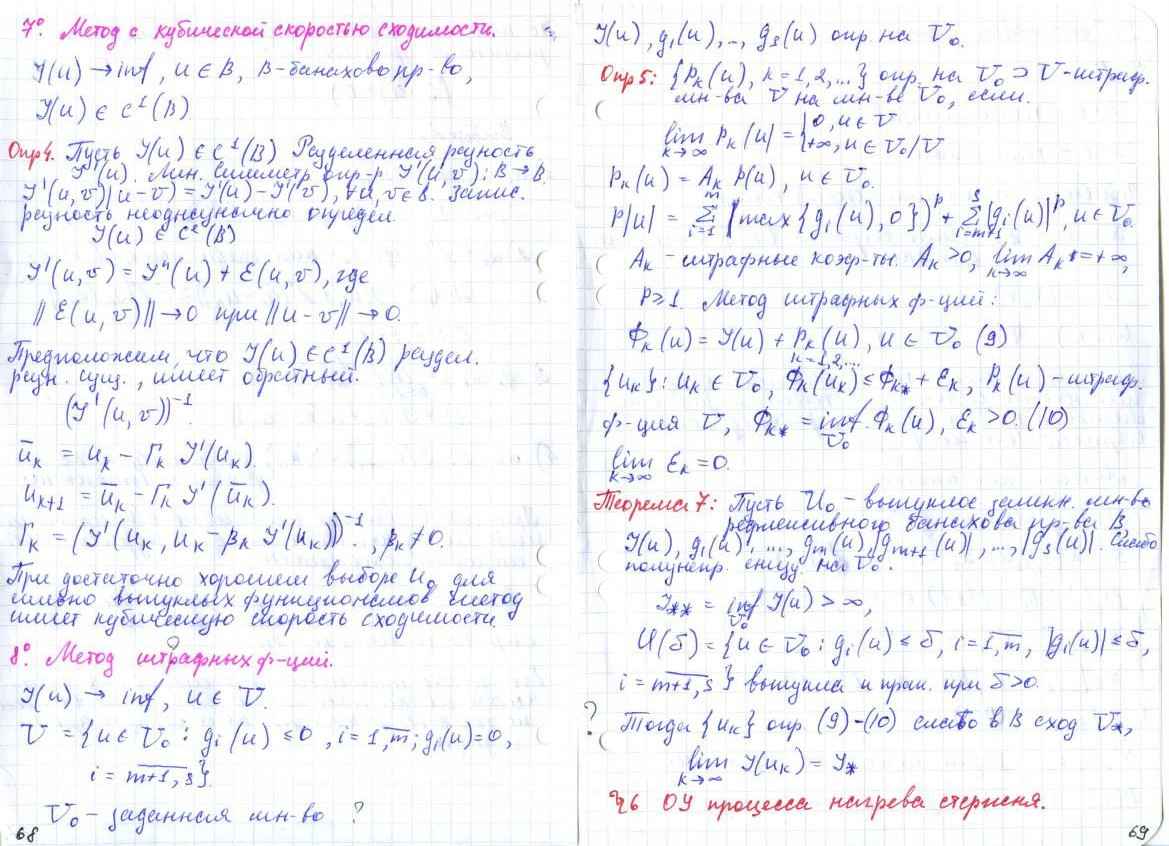 7° Метод с кубической скоростью сходимости.
J(u) → inf, u ∈ B, B-банахово пр-во,
J(u) ∈ C¹(B)
Опр4. Пусть J(u) ∈ C¹(B) Разделенная разность
J'(u). Лин. симметр опр-р J'(u,v): B → B.
J'(u,v)(u-v) = J'(u) - J'(v), ∀u,v∈B. Запис.
разность неоднозначно определ.
J(u) ∈ C²(B)
J'(u,v) = J''(u) + ε(u,v), где
||ε(u,v)|| → 0 при ||u-v|| → 0.
Предположим, что J(u) ∈ C¹(B) раздел.
разн. сущ., имеет обратный.
(J'(u,v))⁻¹
ū_k = u_k - Γ_k J'(u_k).
u_{k+1} = ū_k - Γ_k J'(ū_k).
Γ_k = (J'(u_k, u_k - β_k J'(u_k)))⁻¹, β_k ≠ 0.
При достаточно хорошем выборе u₀ для
сильно выпуклых функционалов метод
имеет кубическую скорость сходимости
?
8° Метод штрафных ф-ций.
J(u) → inf, u ∈ U.
U = {u ∈ U₀ : g_i(u) ≤ 0, i = 1,m; g_i(u) = 0,
i = m+1,s}.
U₀ - заданная мн-во ?
68
J(u), g₁(u), .., g_s(u) опр. на U₀.
Опр5: {P_k(u), k = 1,2,...} опр. на U₀ ⊃ U-штраф.
мн-ва U на мн-ве U₀, если.
lim_{k→∞} P_k(u) = {0, u∈U
+∞, u∈U₀/U
P_k(u) = A_k P(u), u ∈ U₀.
P(u) = Σ_{i=1}^{m} (max{g_i(u), 0})^p + Σ_{i=m+1}^{s} |g_i(u)|^p, u∈U₀.
A_k - штрафные коэф-ты. A_k > 0, lim_{k→∞} A_k = +∞,
p ≥ 1. Метод штрафных ф-ций:
Φ_k(u) = J(u) + P_k(u), u ∈ U₀ (9)
k=1,2,...
{u_k}: u_k ∈ U₀, Φ_k(u_k) ≤ Φ_{k*} + ε_k, P_k(u) - штраф.
ф-ция U, Φ_{k*} = inf_{U₀} Φ_k(u), ε_k > 0. (10)
lim_{k→∞} ε_k = 0.
Теорема 7: Пусть U₀ - выпуклое замкн. мн-во
рефлексивного банахова пр-ва B,
J(u), g₁(u), ..., g_m(u), |g_{m+1}(u)|, ..., |g_s(u)|. Слабо
полунепр. снизу на U₀.
J_{**} = inf_{U₀} J(u) > ∞,
U(δ) = {u ∈ U₀ : g_i(u) ≤ δ, i = 1,m, |g_i(u)| ≤ δ,
i = m+1,s} выпукла и при δ>0.
? Тогда {u_k} опр. (9)-(10) слабо в B сход U_*,
lim_{k→∞} J(u_k) = J_*
§6 ОУ процесса нагрева стержня.
69